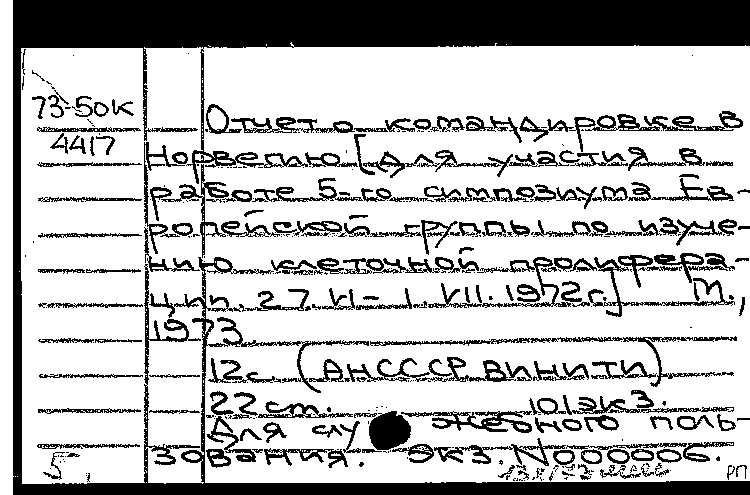 73-50к
Отчет о командировке в
4417
Норвегию [для участия в
работе 5-го симпозиума Ев-
ропейской группы по изуче-
нию клеточной пролифера-
ции. 27.VI - 1.VII.1972г.] М.,
1973.
12с. (АН СССР ВИНИТИ)
22 см. 101экз.
Для служебного поль-
зования. Экз. N000006.
5
РП